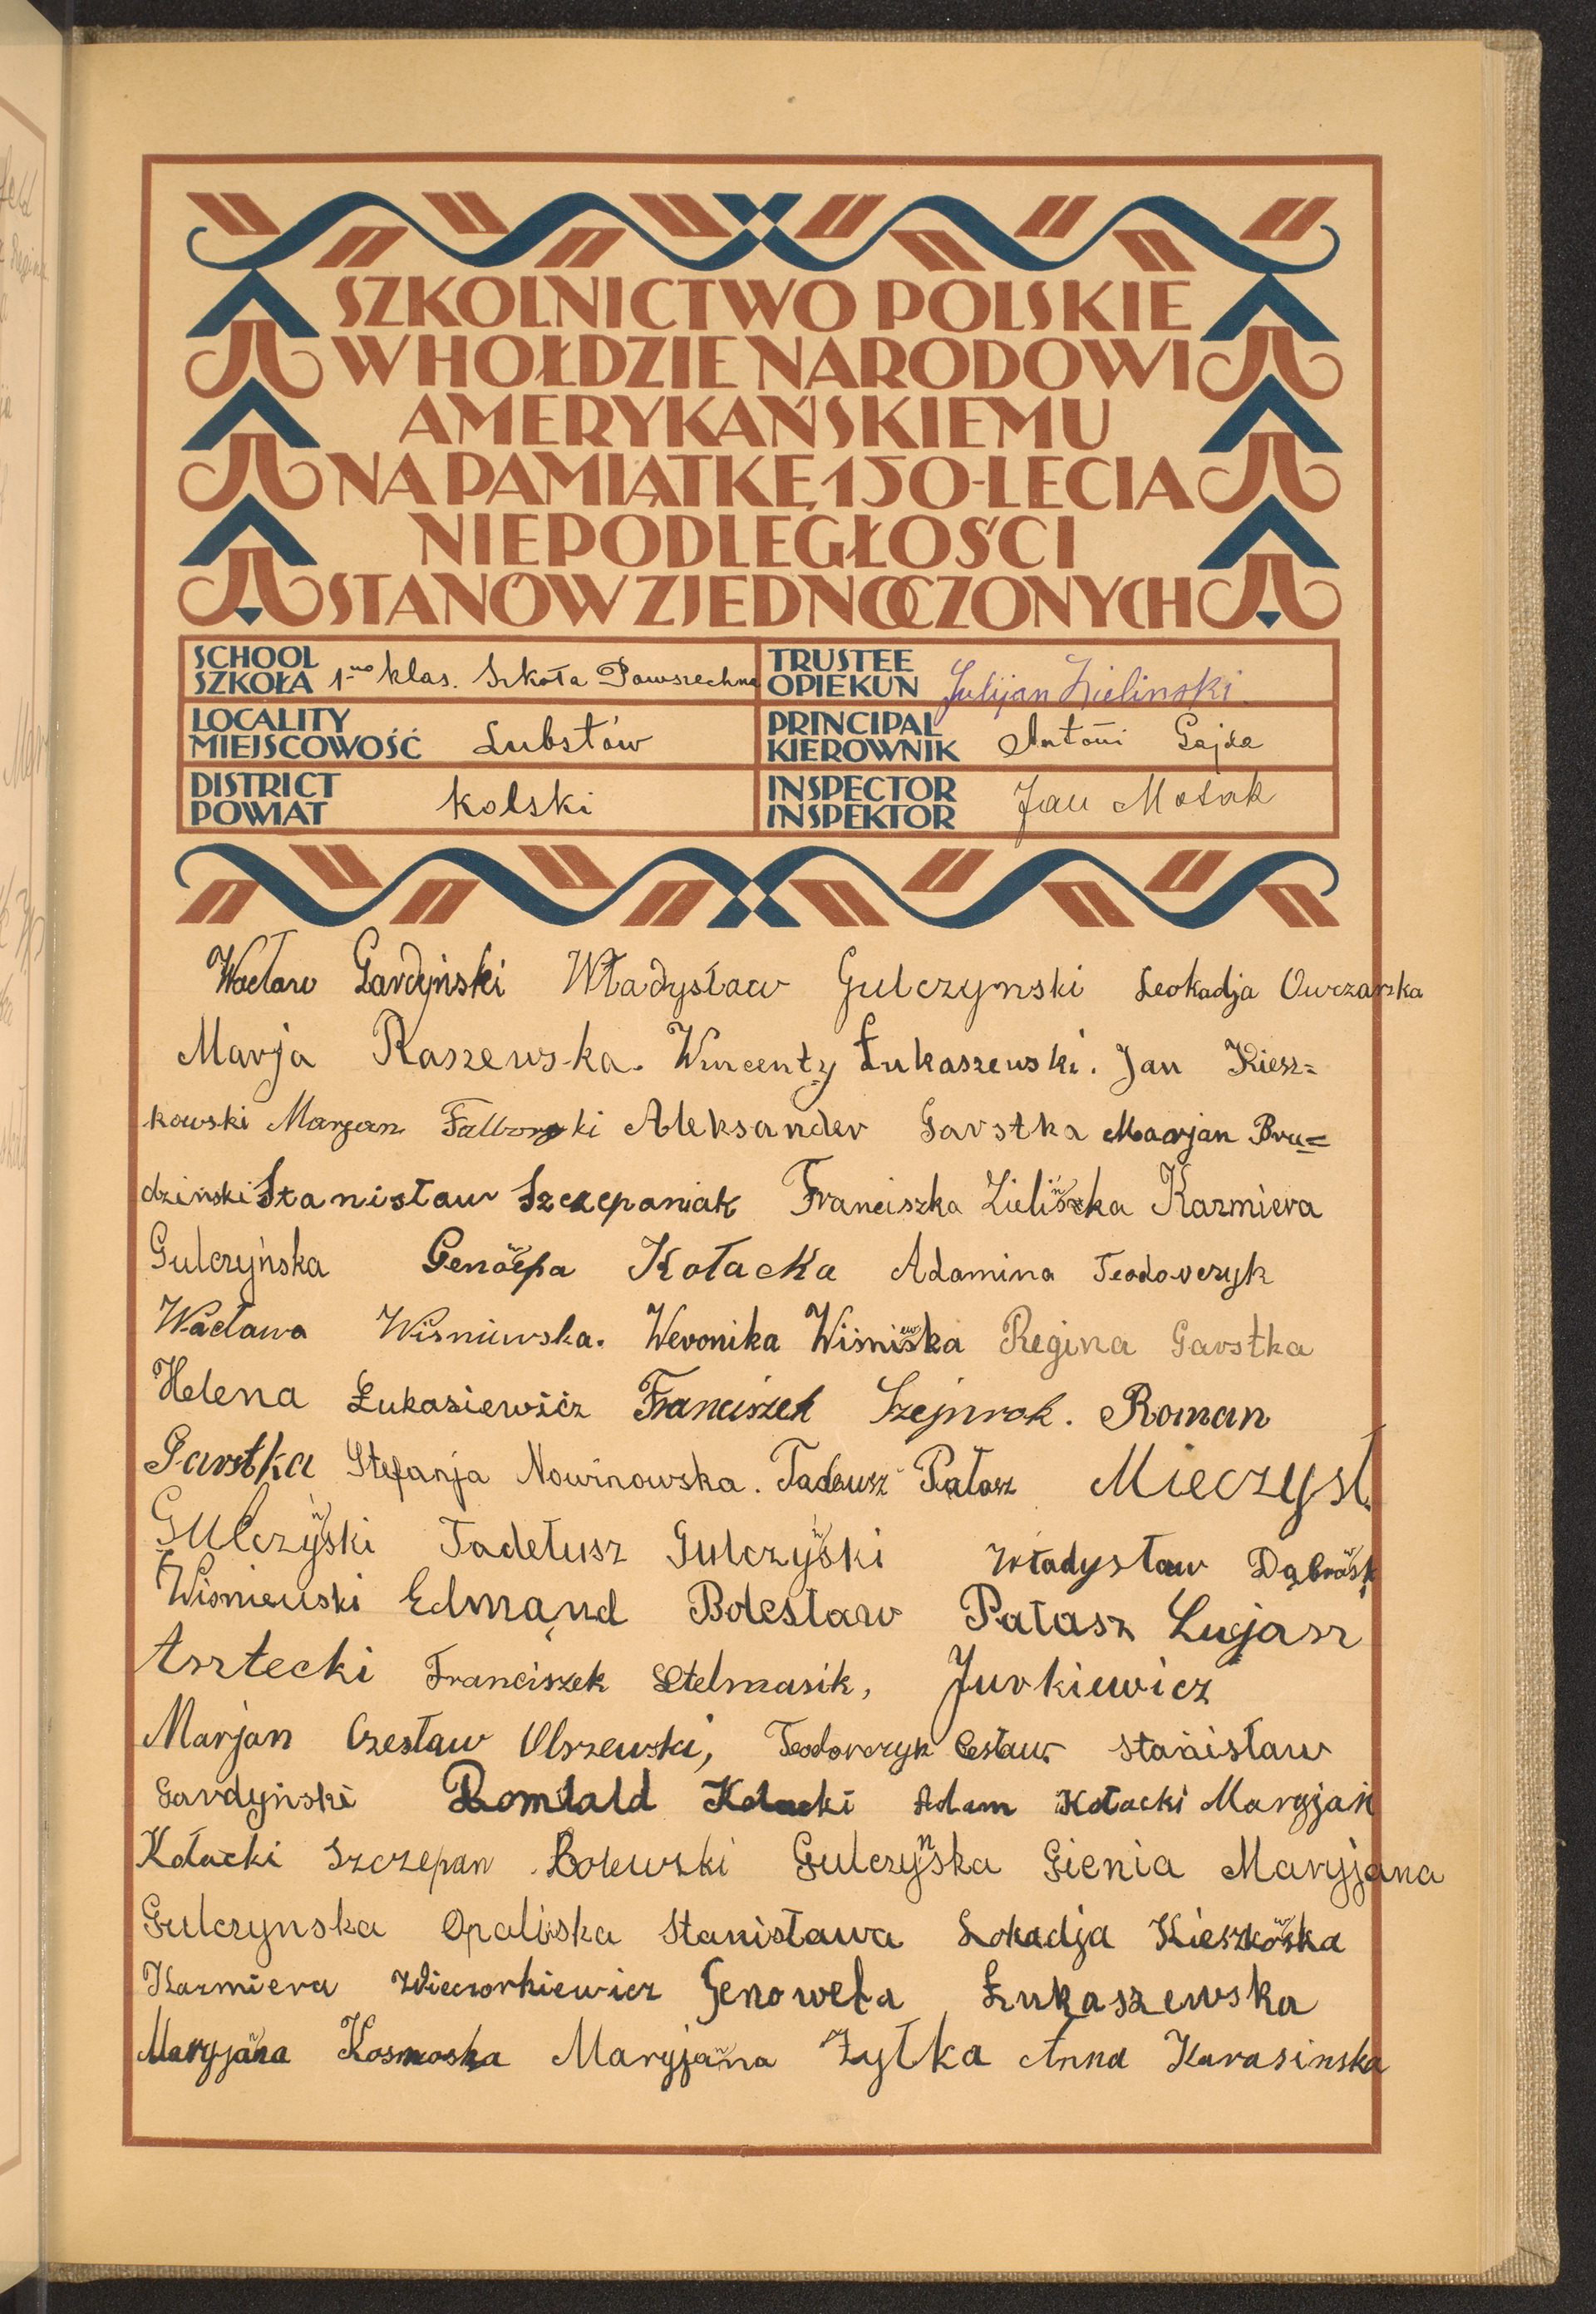 SZKOLNICTWO POLSKIE
W HOŁDZIE NARODOWI
AMERYKAŃSKIEMU
NA PAMIĄTKĘ 150-LECIA
NIEPODLEGŁOŚCI
STANÓW ZJEDNOCZONYCH
SCHOOL
SZKOŁA 1-no klas. Szkoła Powszechna
TRUSTEE
OPIEKUN Julijan Zielinski.
LOCALITY
MIEJSCOWOŚĆ Lubstów
PRINCIPAL
KIEROWNIK Antoni Gajda
DISTRICT
POWIAT kolski
INSPECTOR
INSPEKTOR Jan Mosak
Wacław Gardyński Władysław Gulczynski Leokadja Owczarska
Marja Raszewska. Wincenty Łukaszewski. Jan Kiesz=
kowski Marjan Falborski Aleksander Garstka Marjan Bru=
dziński Stanisław Szczepaniak Franciszka Zielińska Kazmiera
Gulczyńska Genowepa Kołacka Adamina Teodorczyk
Wacława Wisniewska. Weronika Wiśniewska Regina Garstka
Helena Łukasiewicz Franciszek Szejnrok. Roman
Garstka Stefanja Nowinowska. Tadeusz Pałasz Mieczysł.
Gulczyński Tadełusz Gulczyński Władysław Dąbrowsk
Wisniewski Edmąnd Bolesław Pałasz Lucjasz
Asztecki Franciszek Stelmasik, Jurkiewicz
Marjan Czesław Olszewski, Teodorczyk Cesław Stanisław
Gardyński Romłald Kołacki Adam Kołacki Maryjan
Kołacki Szczepan Bolewski Gulczyńska Gienia Maryjana
Gulczynska Opaliska Stanisława Lokadja Kieszkowska
Kazmiera Wieczorkiewicz Genowefa Łukaszewska
Maryjanna Kosmoska Maryjanna Zyłka Anna Karasinska